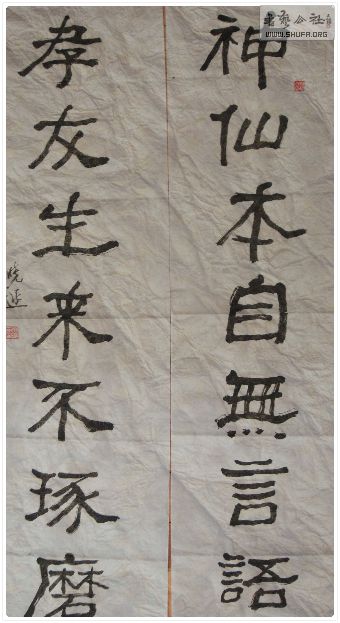 神仙本自無言語
孝友生来不琢磨
曉逕
書藝公社
WWW.SHUFA.ORG